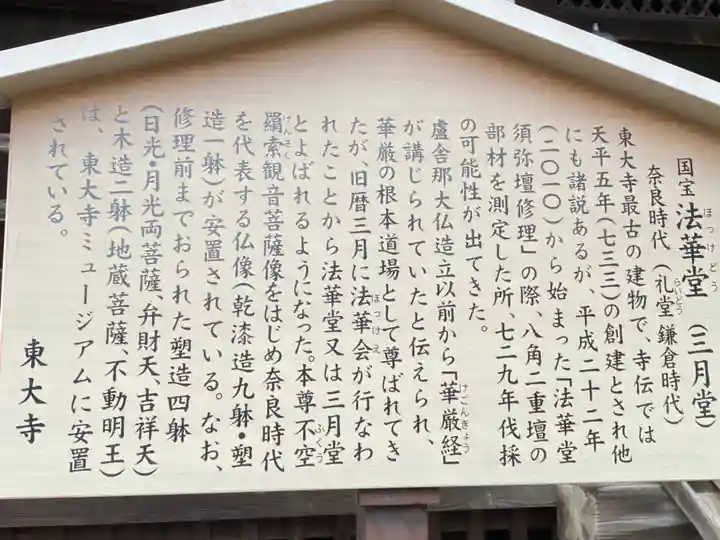 国宝 法華堂（三月堂）
ほっけどう
奈良時代（礼堂 鎌倉時代）
らいどう
東大寺最古の建物で、寺伝では
天平五年（七三三）の創建とされ他
にも諸説あるが、平成二十二年
（二〇一〇）から始まった「法華堂
須弥壇修理」の際、八角二重壇の
部材を測定した所、七二九年伐採
の可能性が出てきた。
盧舎那大仏造立以前から「華厳経」
けごんきょう
が講じられていたと伝えられ、
華厳の根本道場として尊ばれてき
たが、旧暦三月に法華会が行なわ
ほっけえ
れたことから法華堂又は三月堂
とよばれるようになった。本尊不空
ふくう
羂索観音菩薩像をはじめ奈良時代
けんさく
を代表する仏像（乾漆造九躰・塑
造一躰）が安置されている。なお、
修理前までおられた塑造四躰
（日光・月光両菩薩、弁財天、吉祥天）
と木造二躰（地蔵菩薩、不動明王）
は、東大寺ミュージアムに安置
されている。
東大寺